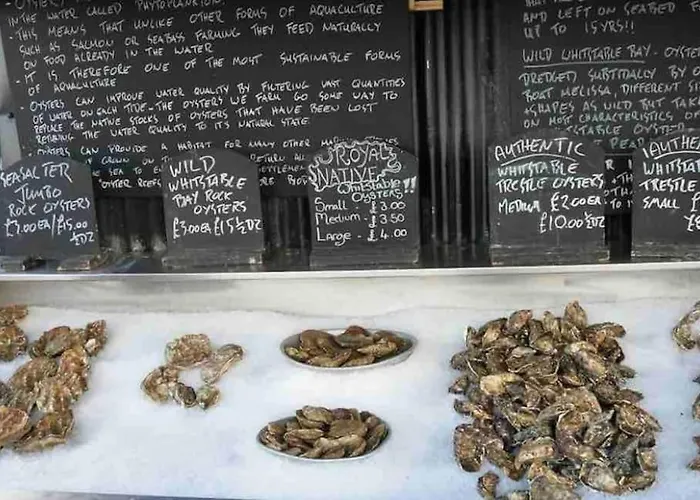 IN THE WATER CALLED PHYTOPLANKTON.
THIS MEANS THAT UNLIKE OTHER FORMS OF AQUACULTURE
SUCH AS SALMON OR SEABASS FARMING THEY FEED NATURALLY
ON FOOD ALREADY IN THE WATER
- IT IS THEREFORE ONE OF THE MOST SUSTAINABLE FORMS
OF AQUACULTURE
- OYSTERS CAN IMPROVE WATER QUALITY BY FILTERING VAST QUANTITIES
OF WATER ON EACH TIDE - THE OYSTERS WE FARM GO SOME WAY TO
REPLACE THE NATIVE STOCKS OF OYSTERS THAT HAVE BEEN LOST
RETURNING THE WATER QUALITY TO IT'S NATURAL STATE.
- OYSTERS CAN PROVIDE A HABITAT FOR MANY OTHER
OYSTER REEFS
AND LEFT ON SEABED
UP TO 15YRS!!
WILD WHITSTABLE BAY -
DREDGED
BOAT MELISSA, DIFFERENT
+SHAPES AS WILD BUT
ON MOST CHARACTERISTICS
SEASALTER
JUMBO
ROCK OYSTERS
£3.00EA/£15.00
½DZ
WILD
WHITSTABLE
BAY ROCK
OYSTERS
£3.00EA £15 ½DZ
ROYAL
NATIVE
WHITSTABLE
OYSTERS!!
Small £ 3.00
Medium £ 3.50
LARGE - £ 4.00
AUTHENTIC
WHITSTABLE
TRESTLE OYSTERS
MEDIUM £2.00EA
£10.00 ½DZ
AUTHE
WHITSTABLE
TRESTLE
SMALL